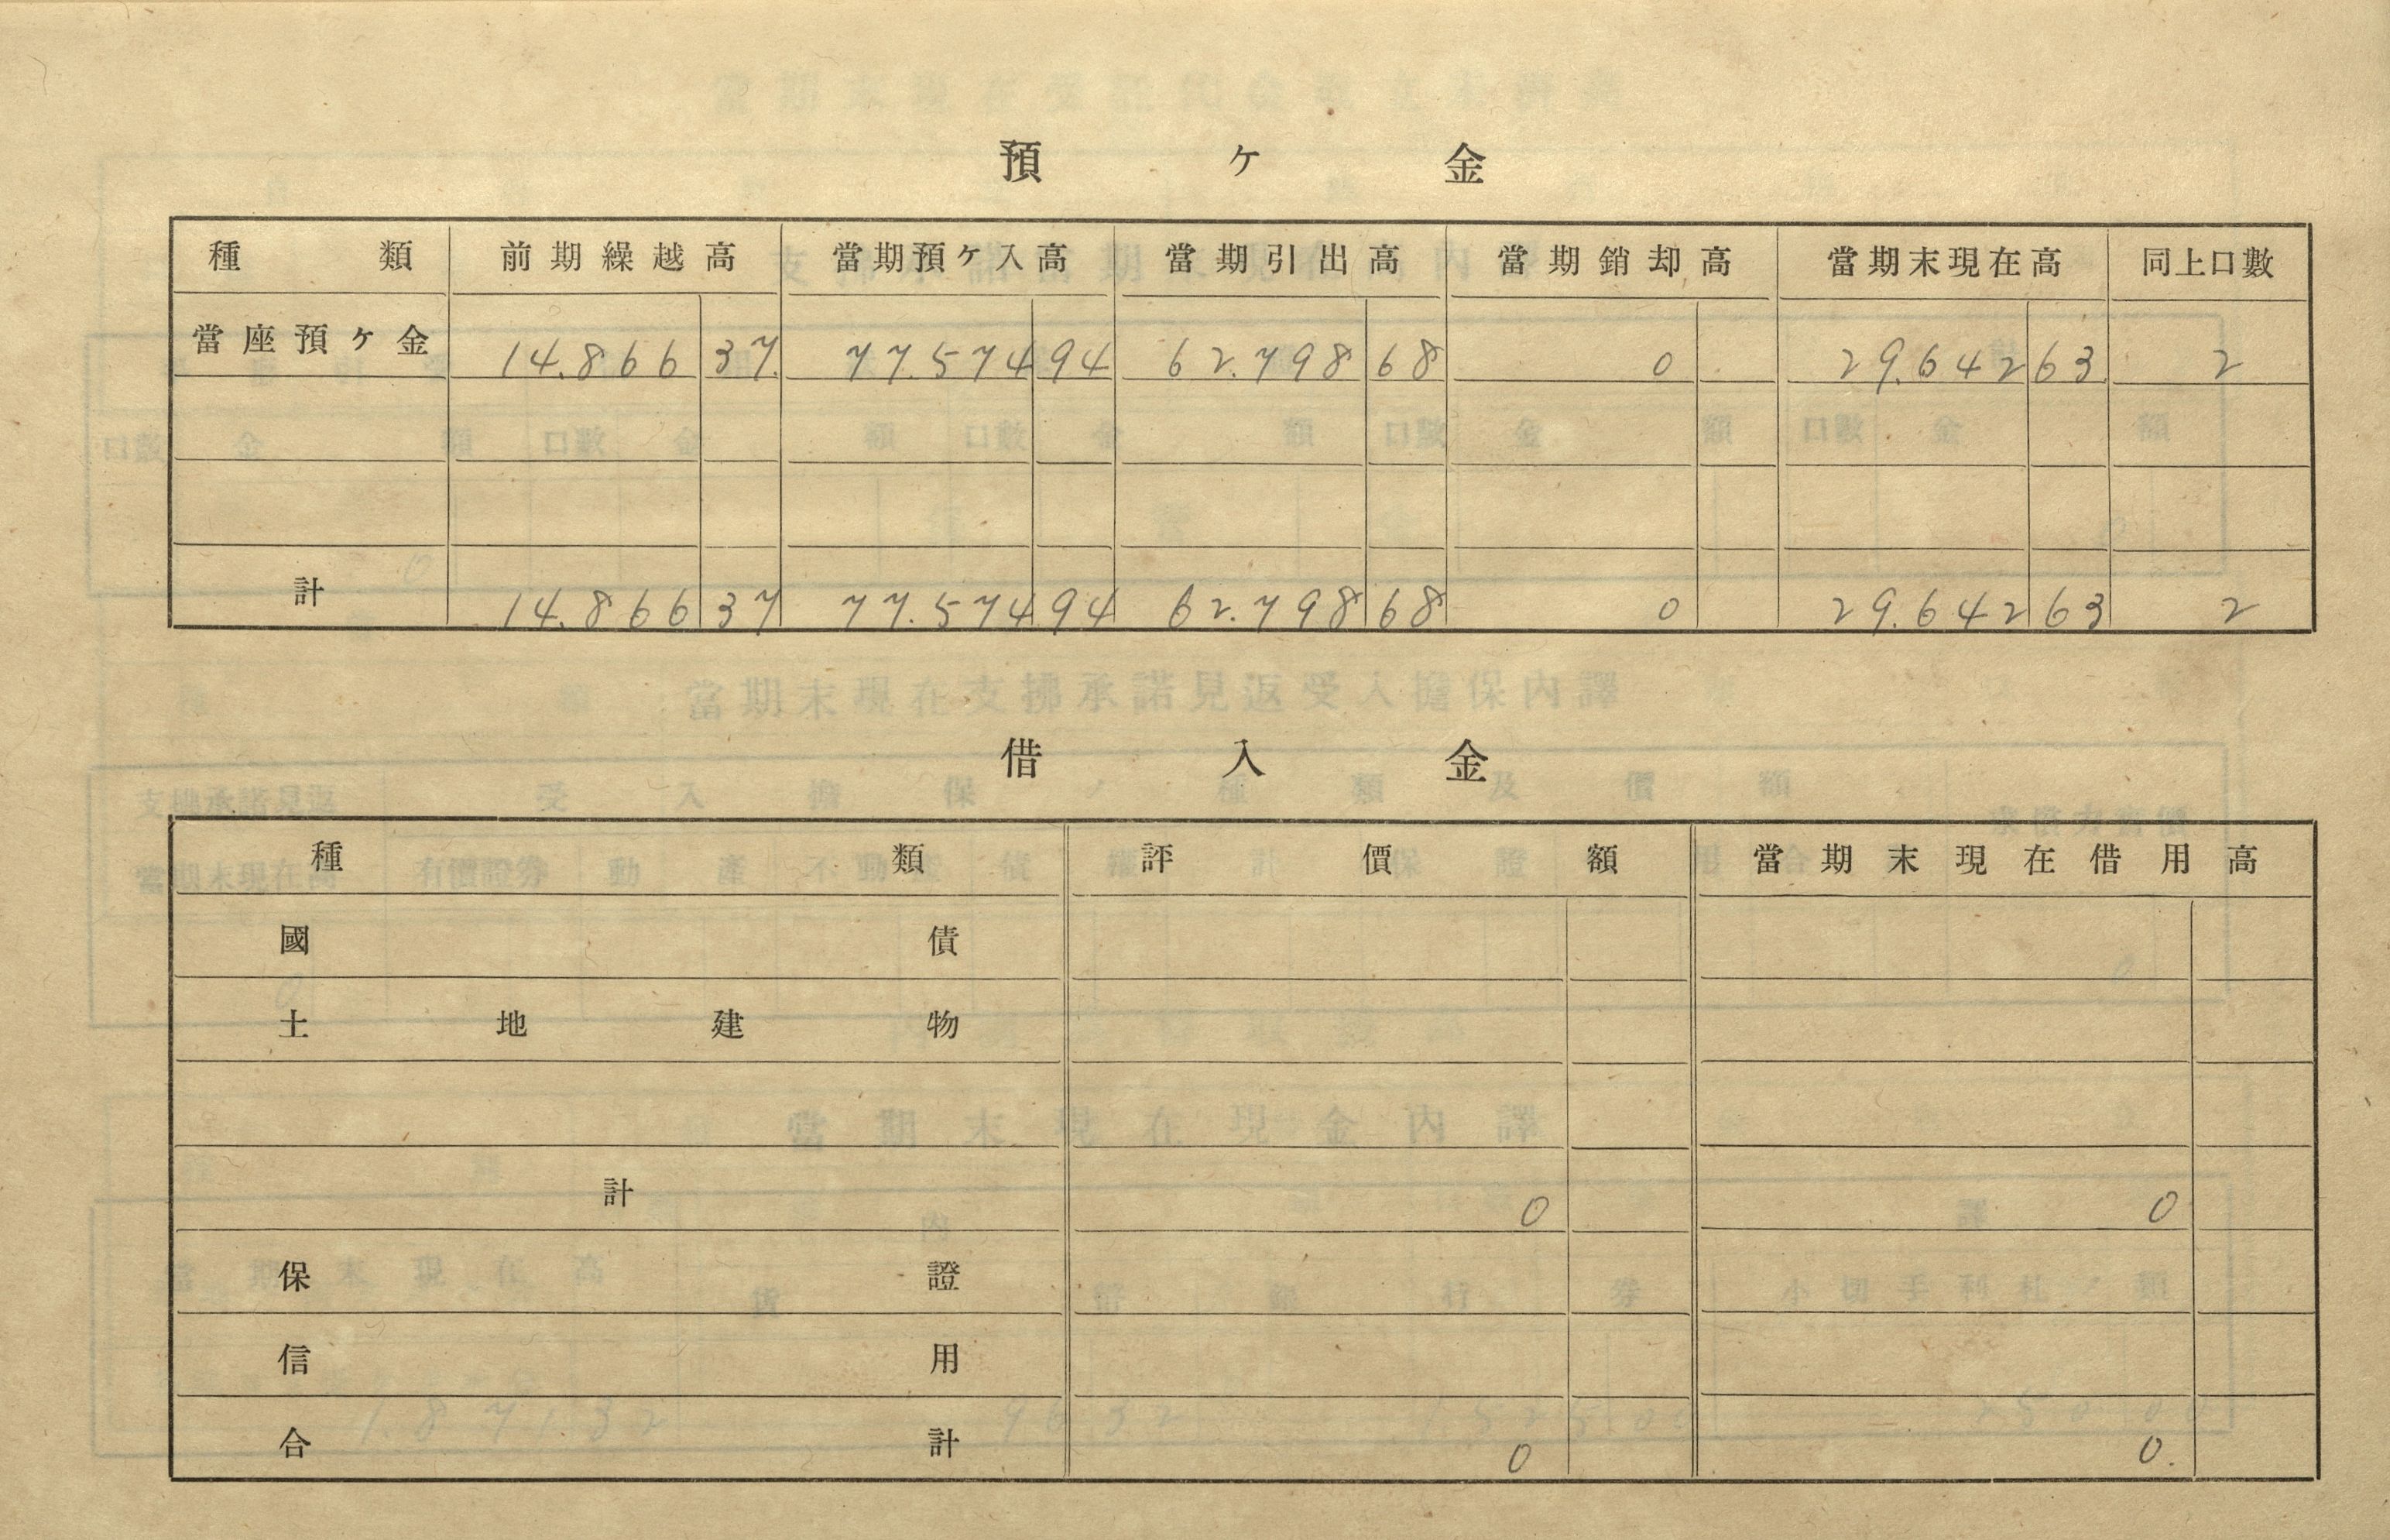 預ケ金
種類 前期繰越高 當期預ケ入高 當期引出高 當期銷却高 當期末現在高 同上口數
當座預ケ金 14.866 37. 77.574 94 62.798 68 0 29.642 63 2
計 14.866 37 77.574 94 62.798 68 0 29.642 63 2
借入金
種類 評價額 當期末現在借用高
國債
土地建物
計 0 0
保證
信用
合計 0 0.